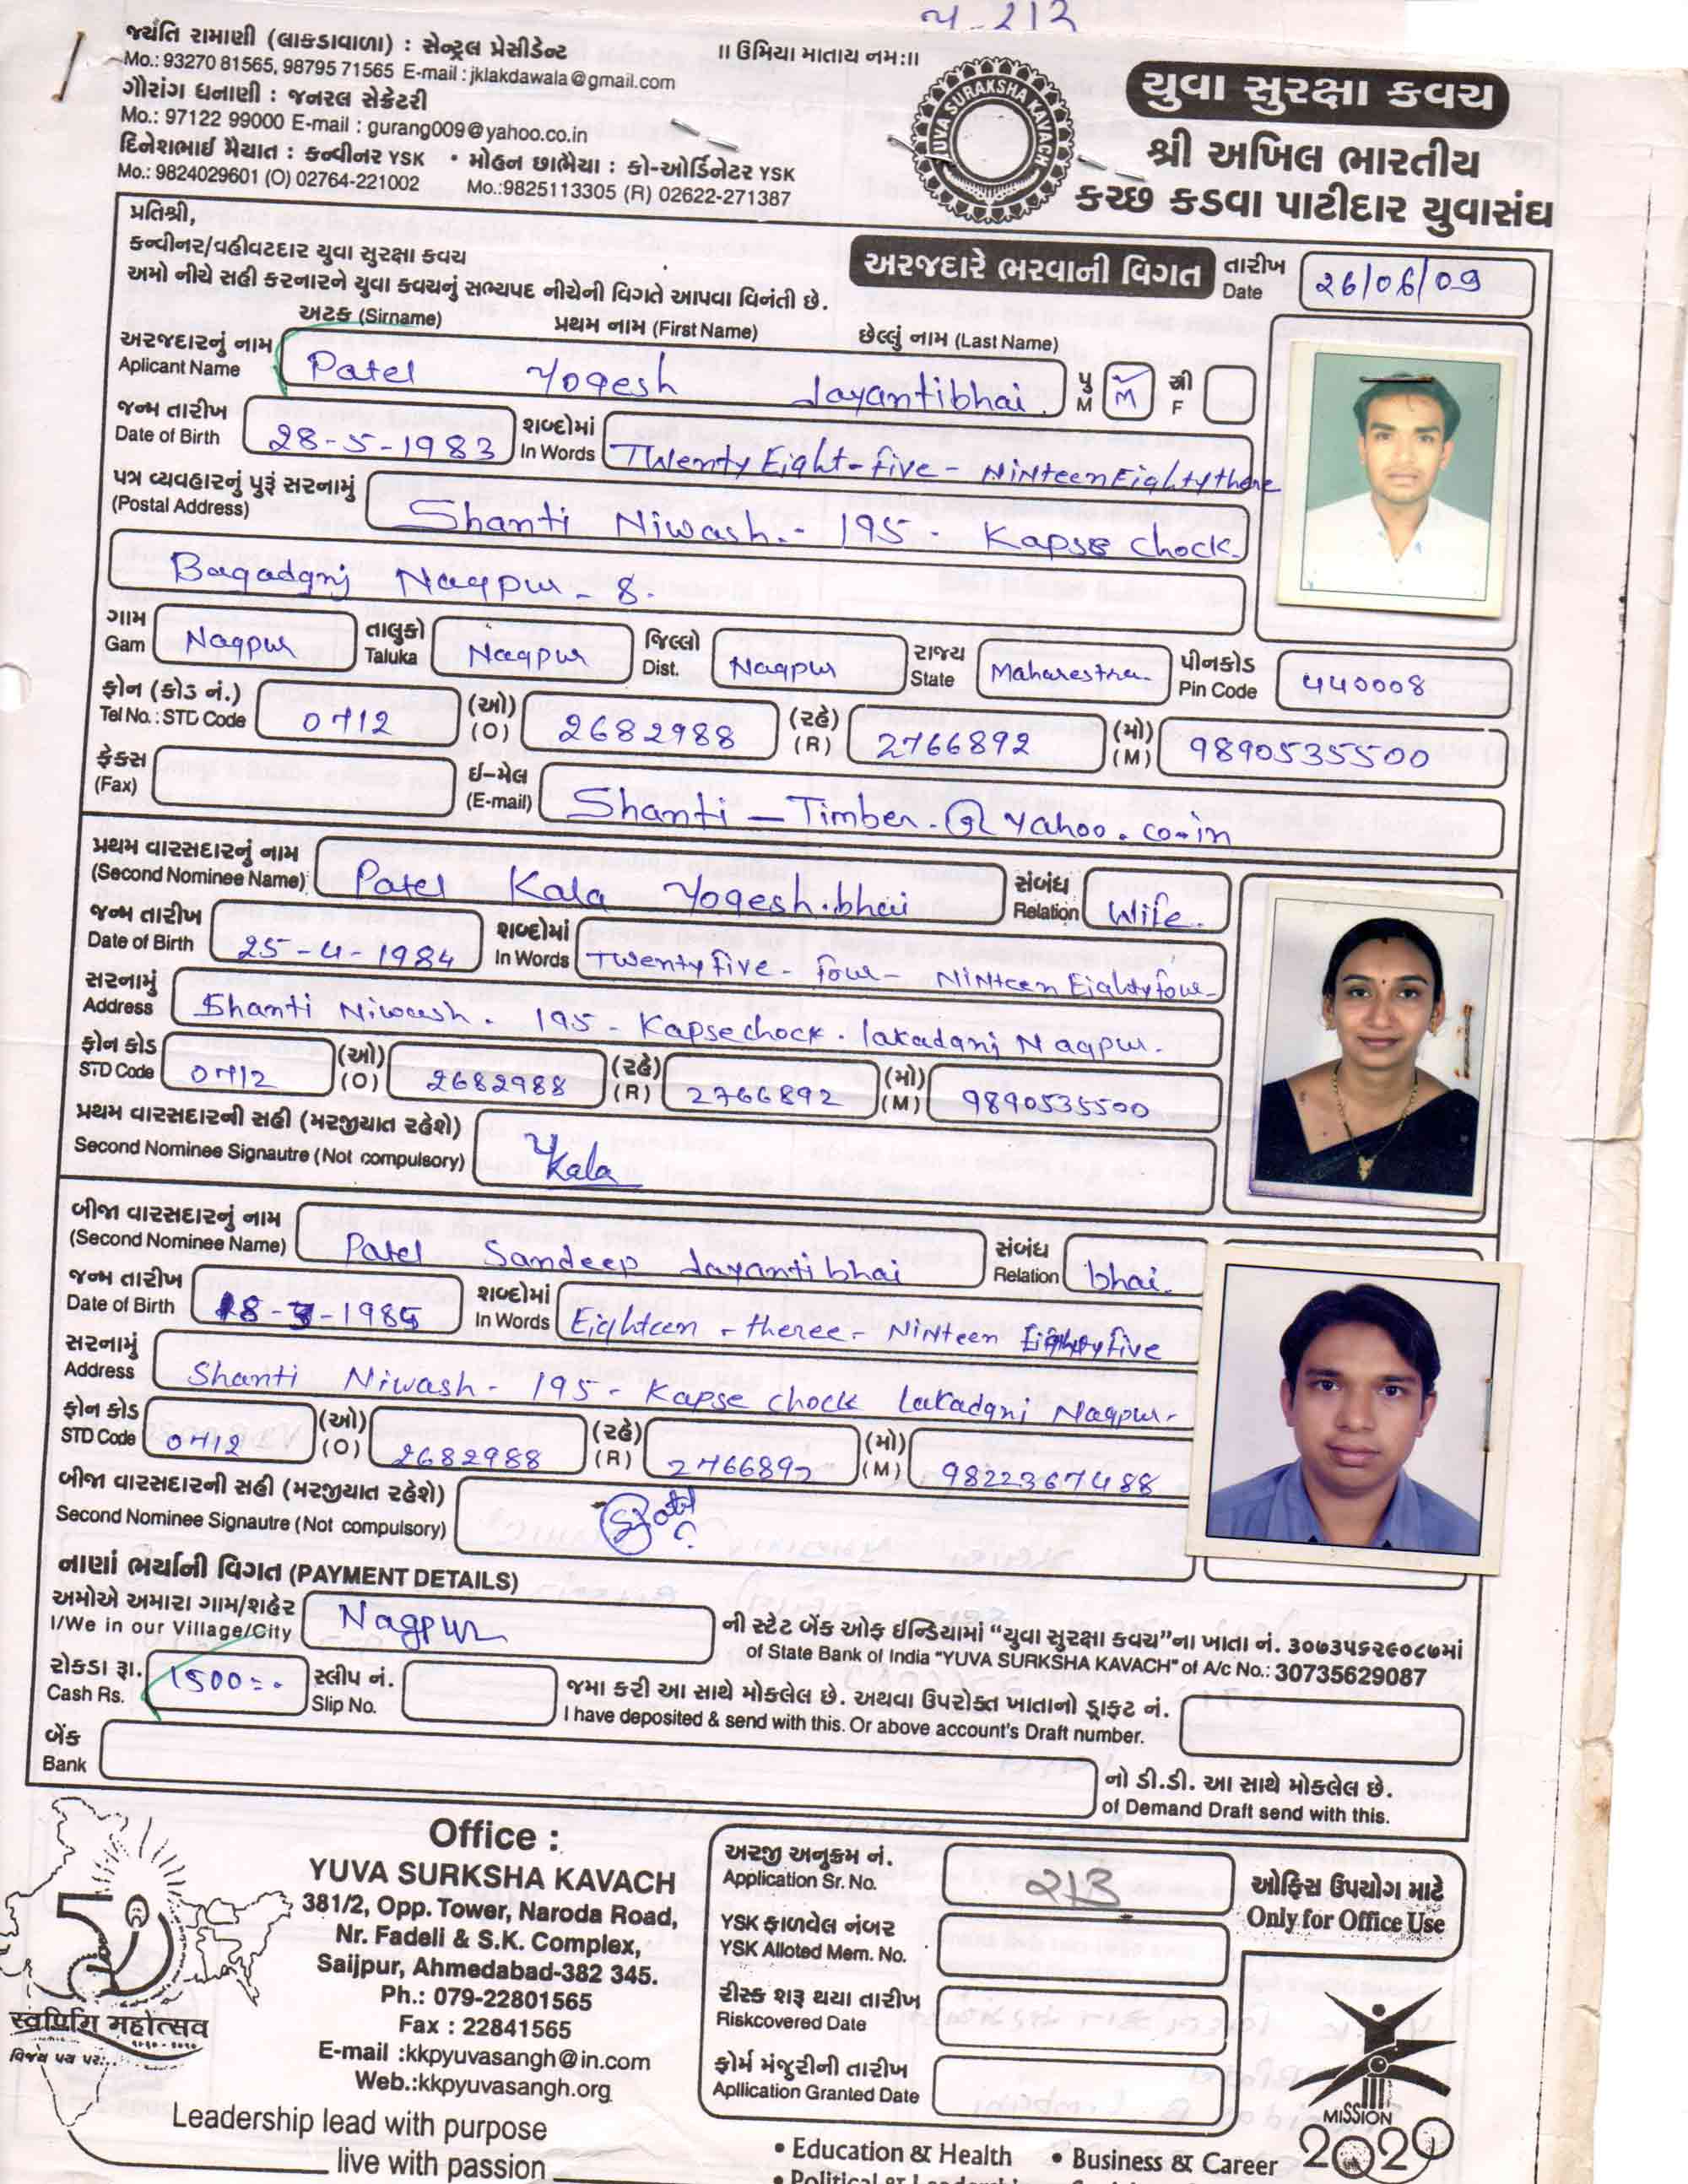 જયંતિ રામાણી (લાકડાવાળા) : સેન્ટ્રલ પ્રેસીડેન્ટ
Mo.: 93270 81565, 98795 71565 E-mail : jklakdawala@gmail.com
ગૌરાંગ ધનાણી : જનરલ સેક્રેટરી
Mo.: 97122 99000 E-mail : gurang009@yahoo.co.in
દિનેશભાઈ મૈયાત : કન્વીનર YSK • મોહન છાભૈયા : કો-ઓર્ડિનેટર YSK
Mo.: 9824029601 (O) 02764-221002 Mo.:9825113305 (R) 02622-271387
॥ ઉમિયા માતાય નમઃ॥
YUVA SURAKSHA KAVACH
યુવા સુરક્ષા કવચ
શ્રી અખિલ ભારતીય
કચ્છ કડવા પાટીદાર યુવાસંઘ
પ્રતિશ્રી,
કન્વીનર/વહીવટદાર યુવા સુરક્ષા કવચ
અમો નીચે સહી કરનારને યુવા કવચનું સભ્યપદ નીચેની વિગતે આપવા વિનંતી છે.
અરજદારે ભરવાની વિગત
તારીખ
Date 26/06/09
અટક (Sirname) પ્રથમ નામ (First Name) છેલ્લું નામ (Last Name)
અરજદારનું નામ
Aplicant Name Patel Yogesh Jayantibhai. પુ M M સ્ત્રી F
જન્મ તારીખ
Date of Birth 28-5-1983 શબ્દોમાં In Words Twenty Eight-five- NiNteen Eightythere
પત્ર વ્યવહારનું પુરૂં સરનામું
(Postal Address) Shanti Niwash.- 195 - Kapse Chock.
Bagadgnj Nagpur - 8.
ગામ Gam Nagpur તાલુકો Taluka Nagpur જિલ્લો Dist. Nagpur રાજ્ય State Maharestra પીનકોડ Pin Code 440008
ફોન (કોડ નં.)
Tel No.: STD Code 0712 (ઓ) (O) 2682988 (રહે) (R) 2766892 (મો) (M) 9890535500
ફેક્સ
(Fax) ઈ-મેલ (E-mail) Shanti - Timber.@yahoo.co-in
પ્રથમ વારસદારનું નામ
(Second Nominee Name) Patel Kala Yogesh.bhai સંબંધ Relation Wife.
જન્મ તારીખ
Date of Birth 25-4-1984 શબ્દોમાં In Words Twenty five - four - NiNteen Eightyfour-
સરનામું
Address Shanti Niwash. 195 - Kapse chock. lakadgnj Nagpur.
ફોન કોડ
STD Code 0712 (ઓ) (O) 2682988 (રહે) (R) 2766892 (મો) (M) 9890535500
પ્રથમ વારસદારની સહી (મરજીયાત રહેશે)
Second Nominee Signautre (Not compulsory) Kala
બીજા વારસદારનું નામ
(Second Nominee Name) Patel Sandeep Jayantibhai સંબંધ Relation bhai.
જન્મ તારીખ
Date of Birth 18-3-1985 શબ્દોમાં In Words Eighteen - theree - NiNteen Eightyfive
સરનામું
Address Shanti Niwash - 195 - Kapse chock Lakadgnj Nagpur-
ફોન કોડ
STD Code 0712 (ઓ) (O) 2682988 (રહે) (R) 2766892 (મો) (M) 9822367488
બીજા વારસદારની સહી (મરજીયાત રહેશે)
Second Nominee Signautre (Not compulsory)
નાણાં ભર્યાની વિગત (PAYMENT DETAILS)
અમોએ અમારા ગામ/શહેર
I/We in our Village/City Nagpur
ની સ્ટેટ બેંક ઓફ ઈન્ડિયામાં "યુવા સુરક્ષા કવચ"ના ખાતા નં. ૩૦૭૩૫૬૨૯૦૮૭માં
of State Bank of India "YUVA SURKSHA KAVACH" of A/c No.: 30735629087
રોકડા રૂા.
Cash Rs. 1500=. સ્લીપ નં. Slip No.
જમા કરી આ સાથે મોકલેલ છે. અથવા ઉપરોક્ત ખાતાનો ડ્રાફ્ટ નં.
I have deposited & send with this. Or above account's Draft number.
બેંક
Bank
નો ડી.ડી. આ સાથે મોકલેલ છે.
of Demand Draft send with this.
Office :
YUVA SURKSHA KAVACH
381/2, Opp. Tower, Naroda Road,
Nr. Fadeli & S.K. Complex,
Saijpur, Ahmedabad-382 345.
Ph.: 079-22801565
Fax : 22841565
E-mail :kkpyuvasangh@in.com
Web.:kkpyuvasangh.org
Leadership lead with purpose
live with passion
50
महोत्सव
અરજી અનુક્રમ નં.
Application Sr. No. 213
YSK ફાળવેલ નંબર
YSK Alloted Mem. No.
રીસ્ક શરૂ થયા તારીખ
Riskcovered Date
ફોર્મ મંજુરીની તારીખ
Apllication Granted Date
ઓફિસ ઉપયોગ માટે
Only for Office Use
MISSION
2020
• Education & Health • Business & Career